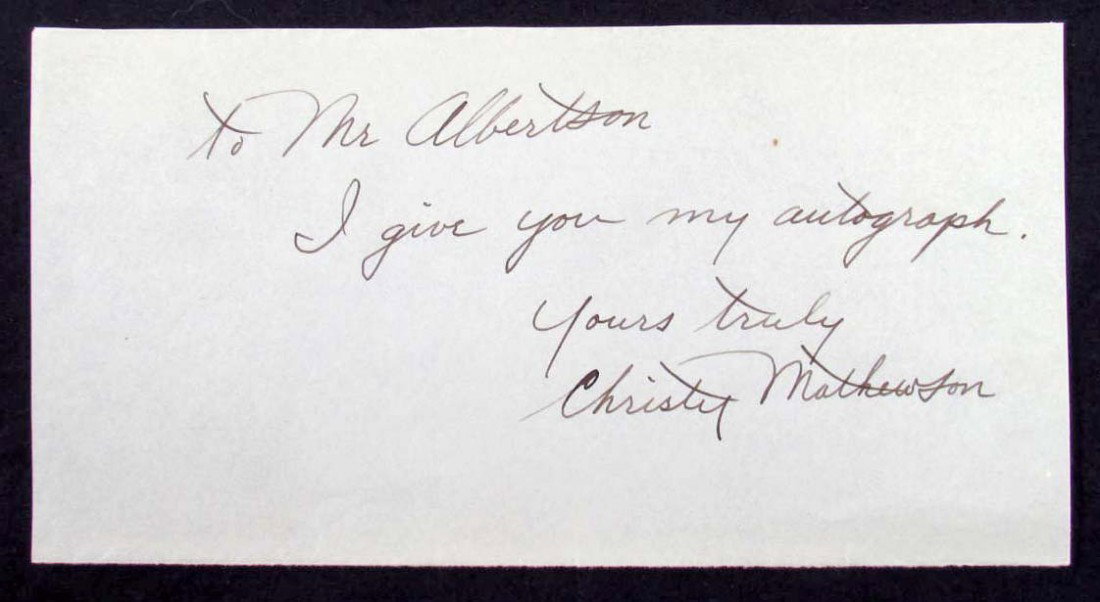 to Mr Albertson
I give you my autograph.
Yours truly
Christy Mathewson